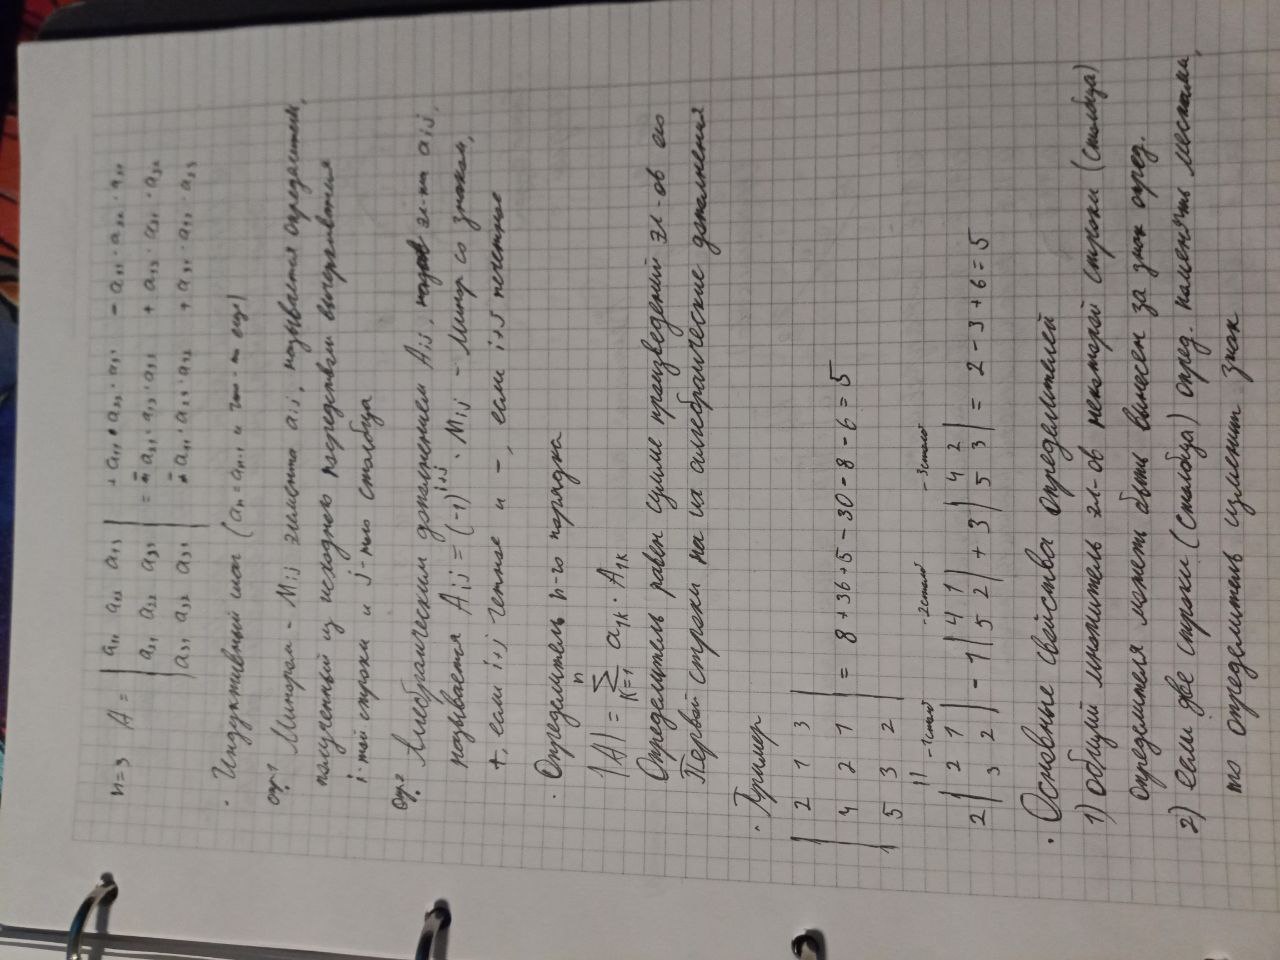 n=3 A = | a₁₁ a₁₂ a₁₃ |
| a₂₁ a₂₂ a₂₃ | =
| a₃₁ a₃₂ |
· Индуктивный шаг (aₙ = aₙ₋₁ и что-то еще)
Опр.1 Минором - Mij элемента aij, называется определитель,
полученный из исходного посредством вычеркивания
i-той строки и j-того столбца
Опр.2 Алгебраическим дополнением Aij, эл-та aij,
называется Aij = (-1)^(i+j) · Mij - минор со знаком,
+, если i+j четное и -, если i+j нечетное
· Определитель n-го порядка
|A| = ∑ₖ₌₁ⁿ a₁ₖ · A₁ₖ
Определитель равен сумме произведений эл-ов его
Первой строки на их алгебраические дополнения
· Пример
| 2 1 3 |
| 4 2 1 | = 8 + 36 + 5 - 30 - 8 - 6 = 5
| 5 3 2 |
|| -1 столб -2 столб -3 столб
2 | 2 1 | - 1 | 4 1 | + 3 | 4 2 | = 2 - 3 + 6 = 5
| 3 2 | | 5 2 | | 5 3 |
· Основные свойства определителей
1) общий множитель эл-ов некоторой строки (столбца)
определителя может быть вынесен за знак опред.
2) если две строки (столбца) опред. поменять местами,
то определитель изменит знак